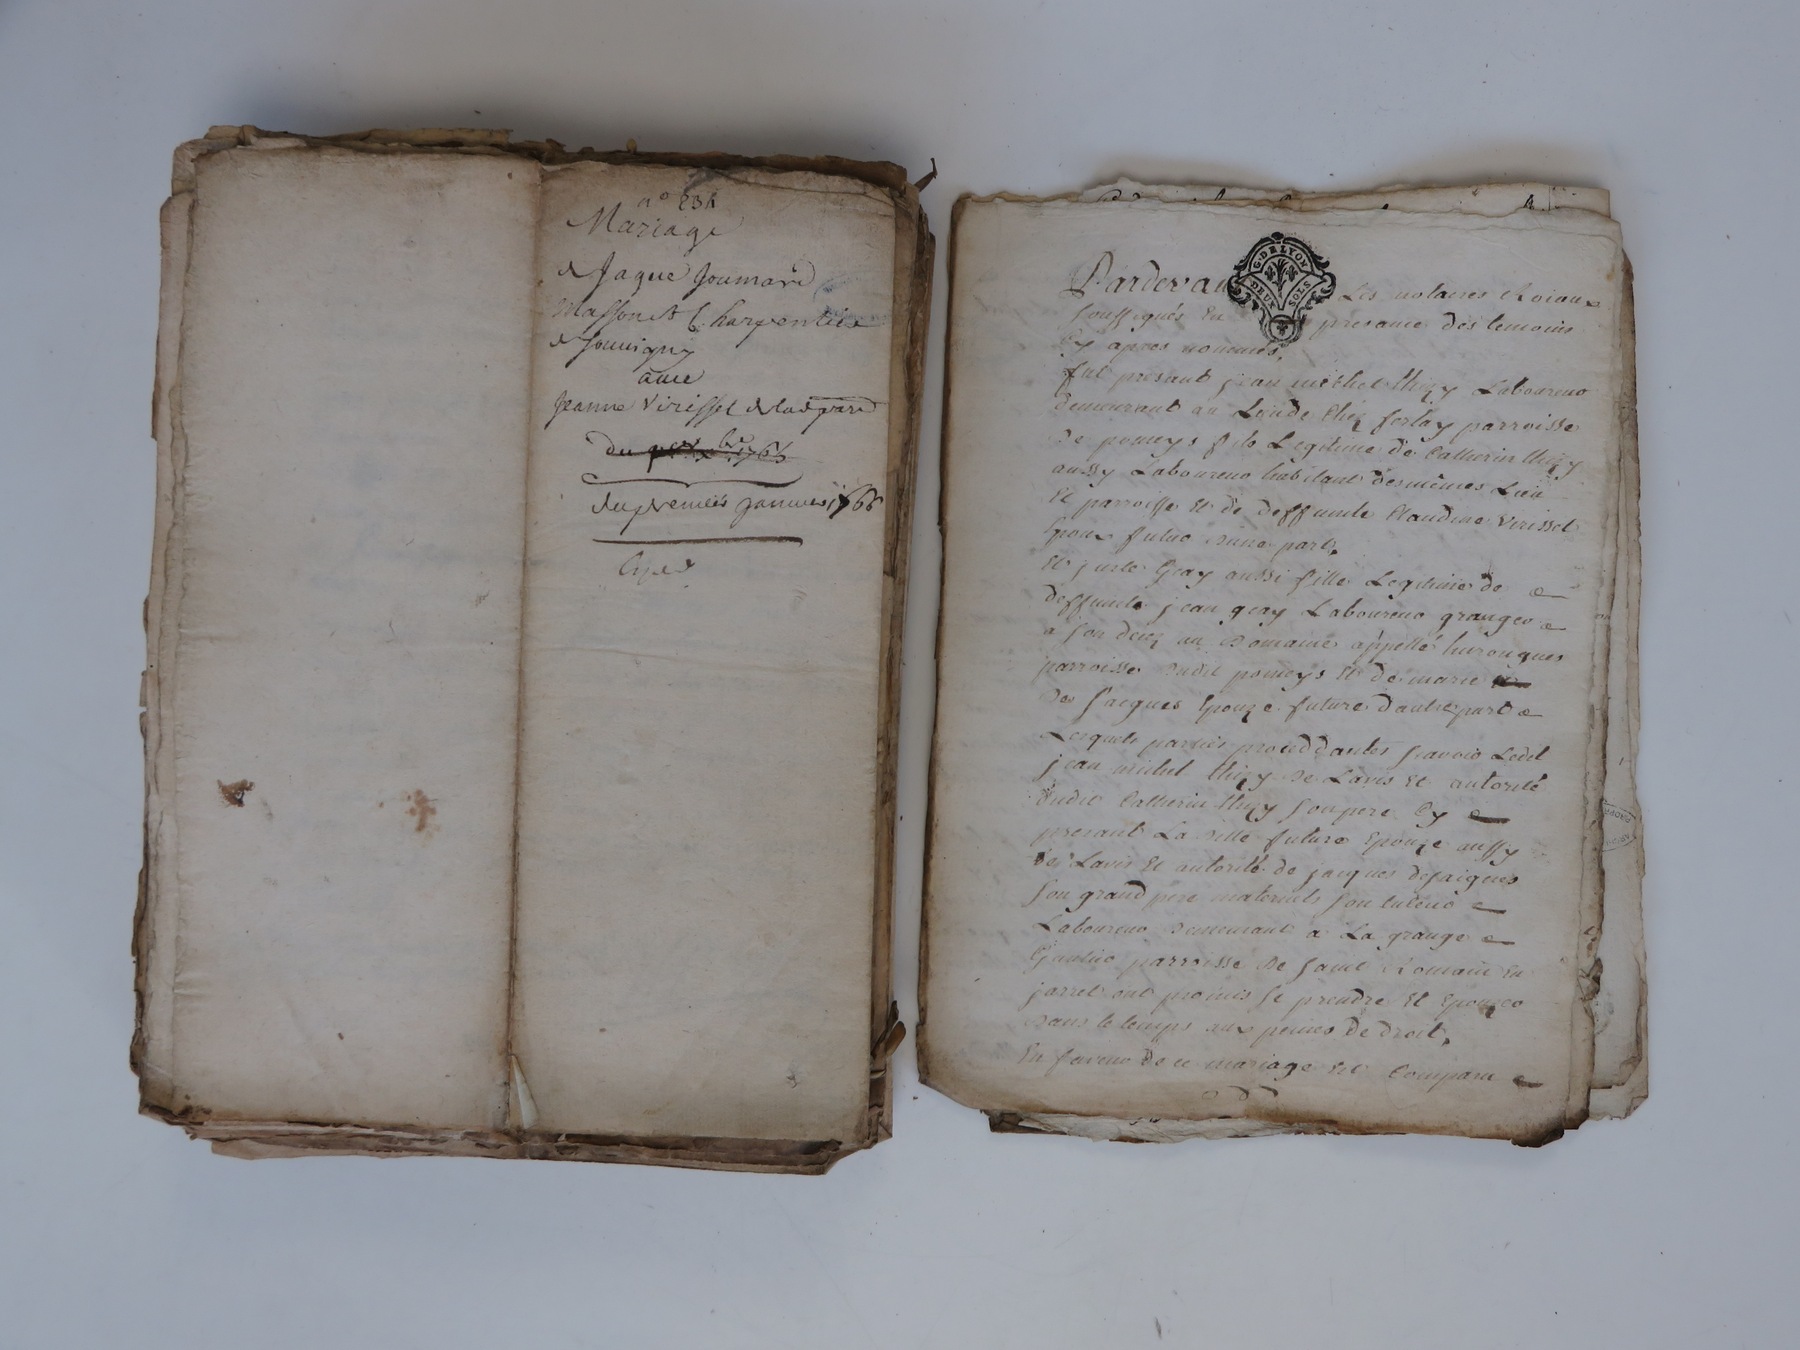 n° 231
Mariage
de Jaque Joumard
Masson et Charpentier
de Souvigny
avec
Jeanne Virisset de
du 1765
du premier janvier 1766
G·DELYON
DEUX SOLS
Pardevant Les notaires Roiaux
soussignés En presance des temoins
Cy apres nommés,
fut presant jean michel thizy Laboureur
demeurant au Lieu de Chez ferlay parroisse
de pomeys fils Legitime de Catherin thizy
aussy Laboureur habitant desmêmes Lieu
Et parroisse Et de deffunte Claudine Virisset
Epoux futur d'une part,
Et juste Gray aussi fille Legitime de
deffunts jean gray Laboureur granger
a son decez au Domaine appellé
parroisse dudit pomeys Et de marie
Des saignes Epouze future dautre part
Lesquels parties proceddantes savoir Ledit
jean michel thizy de Lavis Et autorité
dudit Catherin thizy son pere Cy
presant La ditte future Epouze aussy
de Lavis Et autorité de jacques desaignes
son grand pere maternels son tuteur
Laboureur demeurant a La grange
parroisse de saint Romain En
jarret ont promis se prendre Et Epouzer
dans le temps aux peines de droit,
En faveur de ce mariage Est Comparu